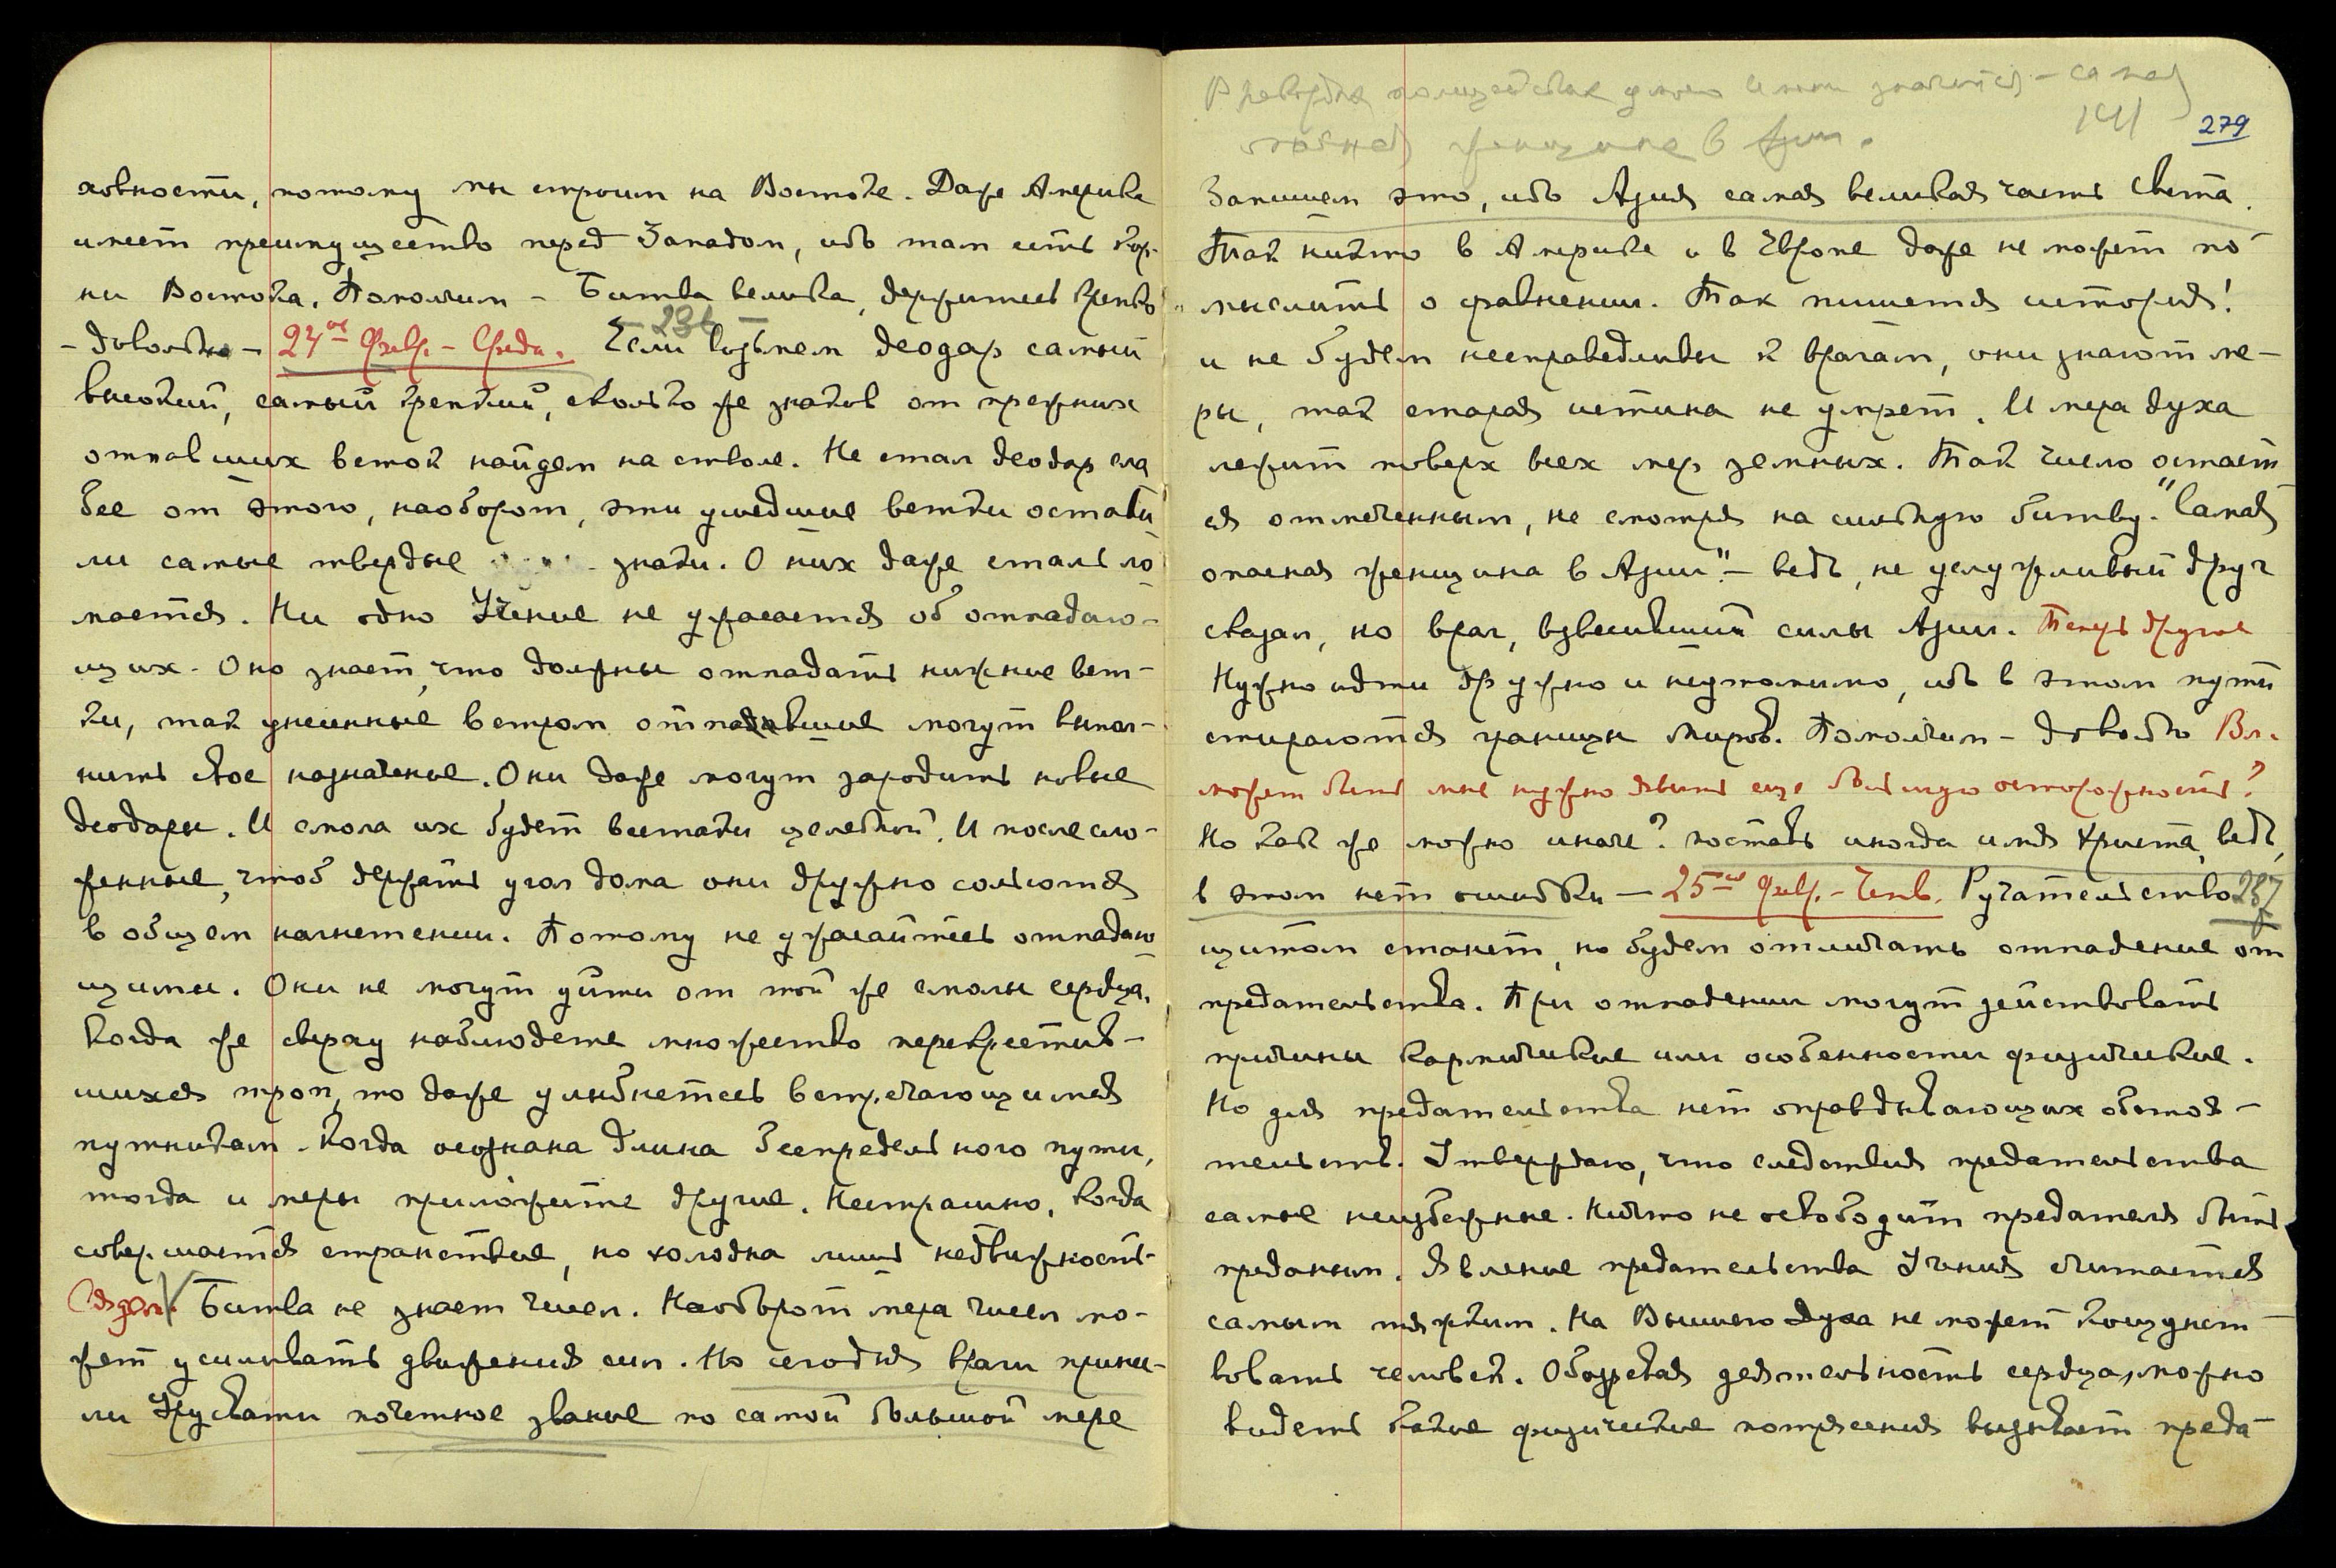 ховности, потому мы строим на Востоке. Даже Америка
имеет преимущество перед Западом, ибо там есть кор-
ни Востока. Помолчим - Битва велика, держитесь крепко
- довольно - 24ое Февр. - Среда. Если возьмем деодар самый
высокий, самый крепкий, сколько же знаков от прежних
отпавших веток найдем на стволе. Не стал деодар сла
бее от этого, наоборот, эти ушедшие ветки остави
ли самые твердые знаки. О них даже сталь ло
мается. Ни одно Учение не ужасается об отпадаю-
щих. Оно знает, что должны отпадать нижние вет-
ки, так унесенные ветром отпадавшие могут выпол-
нить свое назначение. Они даже могут зародить новые
деодары. И смола их будет всетаки целебной. И после сло-
женные, чтоб держать угол дома они дружно сольются
в общем нагнетении. Потому не ужасайтесь отпадаю
щими. Они не могут уйти от той же смолы сердца.
Когда же сверху наблюдете множество перекрестив-
шихся троп, то даже улыбнетесь встречающимся
путникам. Когда осознана длина беспредельного пути,
тогда и меры приложите другие. Нестрашно, когда
совершается странствие, но холодна лишь недвижность.
Битва не знает чисел. Наоборот мера чисел мо-
жет усиливать движения сил. Но сегодня враги присы-
ли Урусвати почетное звание по самой большой мере
279
141
Запишем это, ибо Азия самая великая часть Света.
Так никто в Америке и в Европе даже не может по
мыслить о сравнении. Так пишется история!
и не будем несправедливы к врагам, они знают ме-
ры, так старая истина не умрет. И мера духа
лежит поверх всех мер земных. Так число остает
ся отмеченным, не смотря на сильную битву. "Самая
опасная женщина в Азии" - ведь, не услужливый друг
сказал, но враг, взвесивший силы Азии. Теперь другое
Нужно идти дружно и неутомимо, ибо в этом пути
стираются границы Миров. Помолчим - довольно Вл.
может быть мне нужно явить еще большую осторожность?
Но как же можно иначе? поставь иногда имя Христа, ведь,
в этом нет ошибки - 25ое Февр. - Четв. Ручательство 237
щитом станет, но будем отличать отпадение от
предательства. При отпадении могут действовать
причины кармические или особенности физические.
Но для предательства нет оправдывающих обстоя-
тельств. Утверждаю, что следствия предательства
самые неизбежные. Ничто не освободит предателя быть
преданным. Явление предательства Учения считается
самым тяжким. На Высшего Духа не может кощунст
вовать человек. Обостряя деятельность сердца, можно
видеть какие физические потрясения вызывает преда-